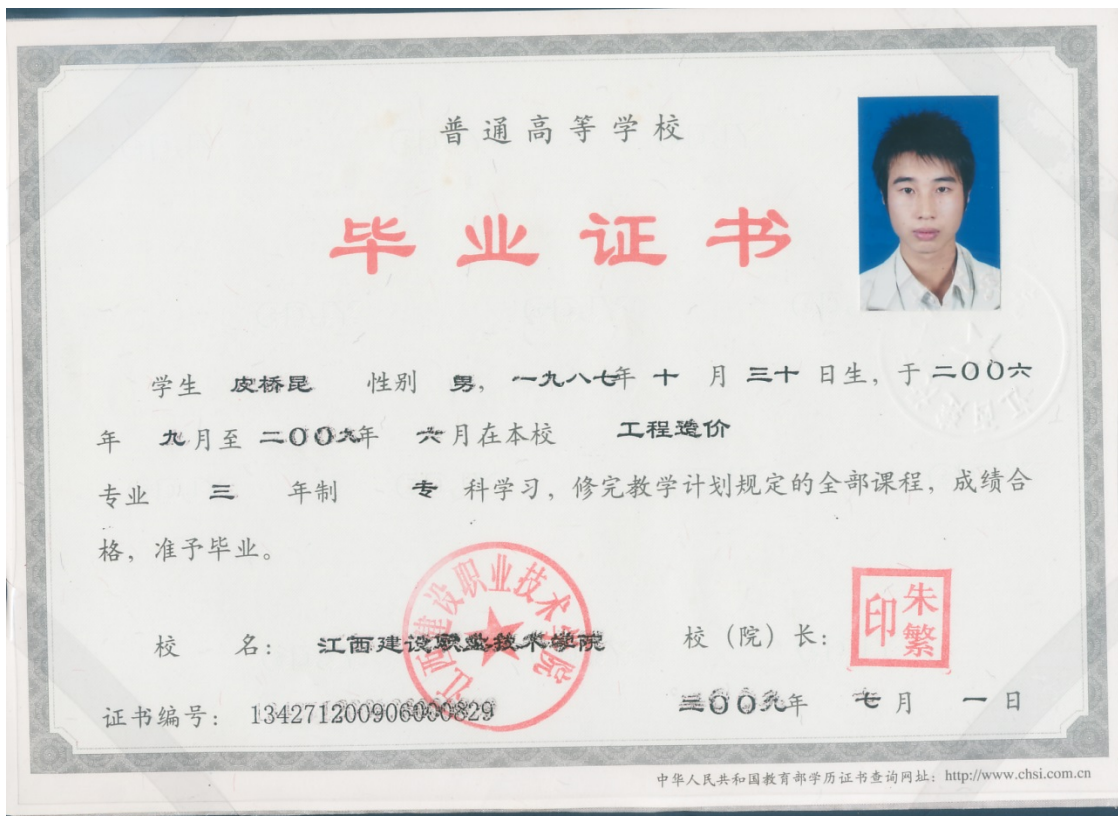 普通高等学校
毕业证书
学生 皮桥昆 性别 男，一九八七年 十 月 三十 日生，于 二00六
年 九月至 二00九年 六月在本校 工程造价
专业 三 年制 专 科学习，修完教学计划规定的全部课程，成绩合
格，准予毕业。
江西建设职业技术学院
校 名： 江西建设职业技术学院 校（院）长：
朱繁印
证书编号： 134271200906000829 二00九年 七月 一日
中华人民共和国教育部学历证书查询网址：http://www.chsi.com.cn